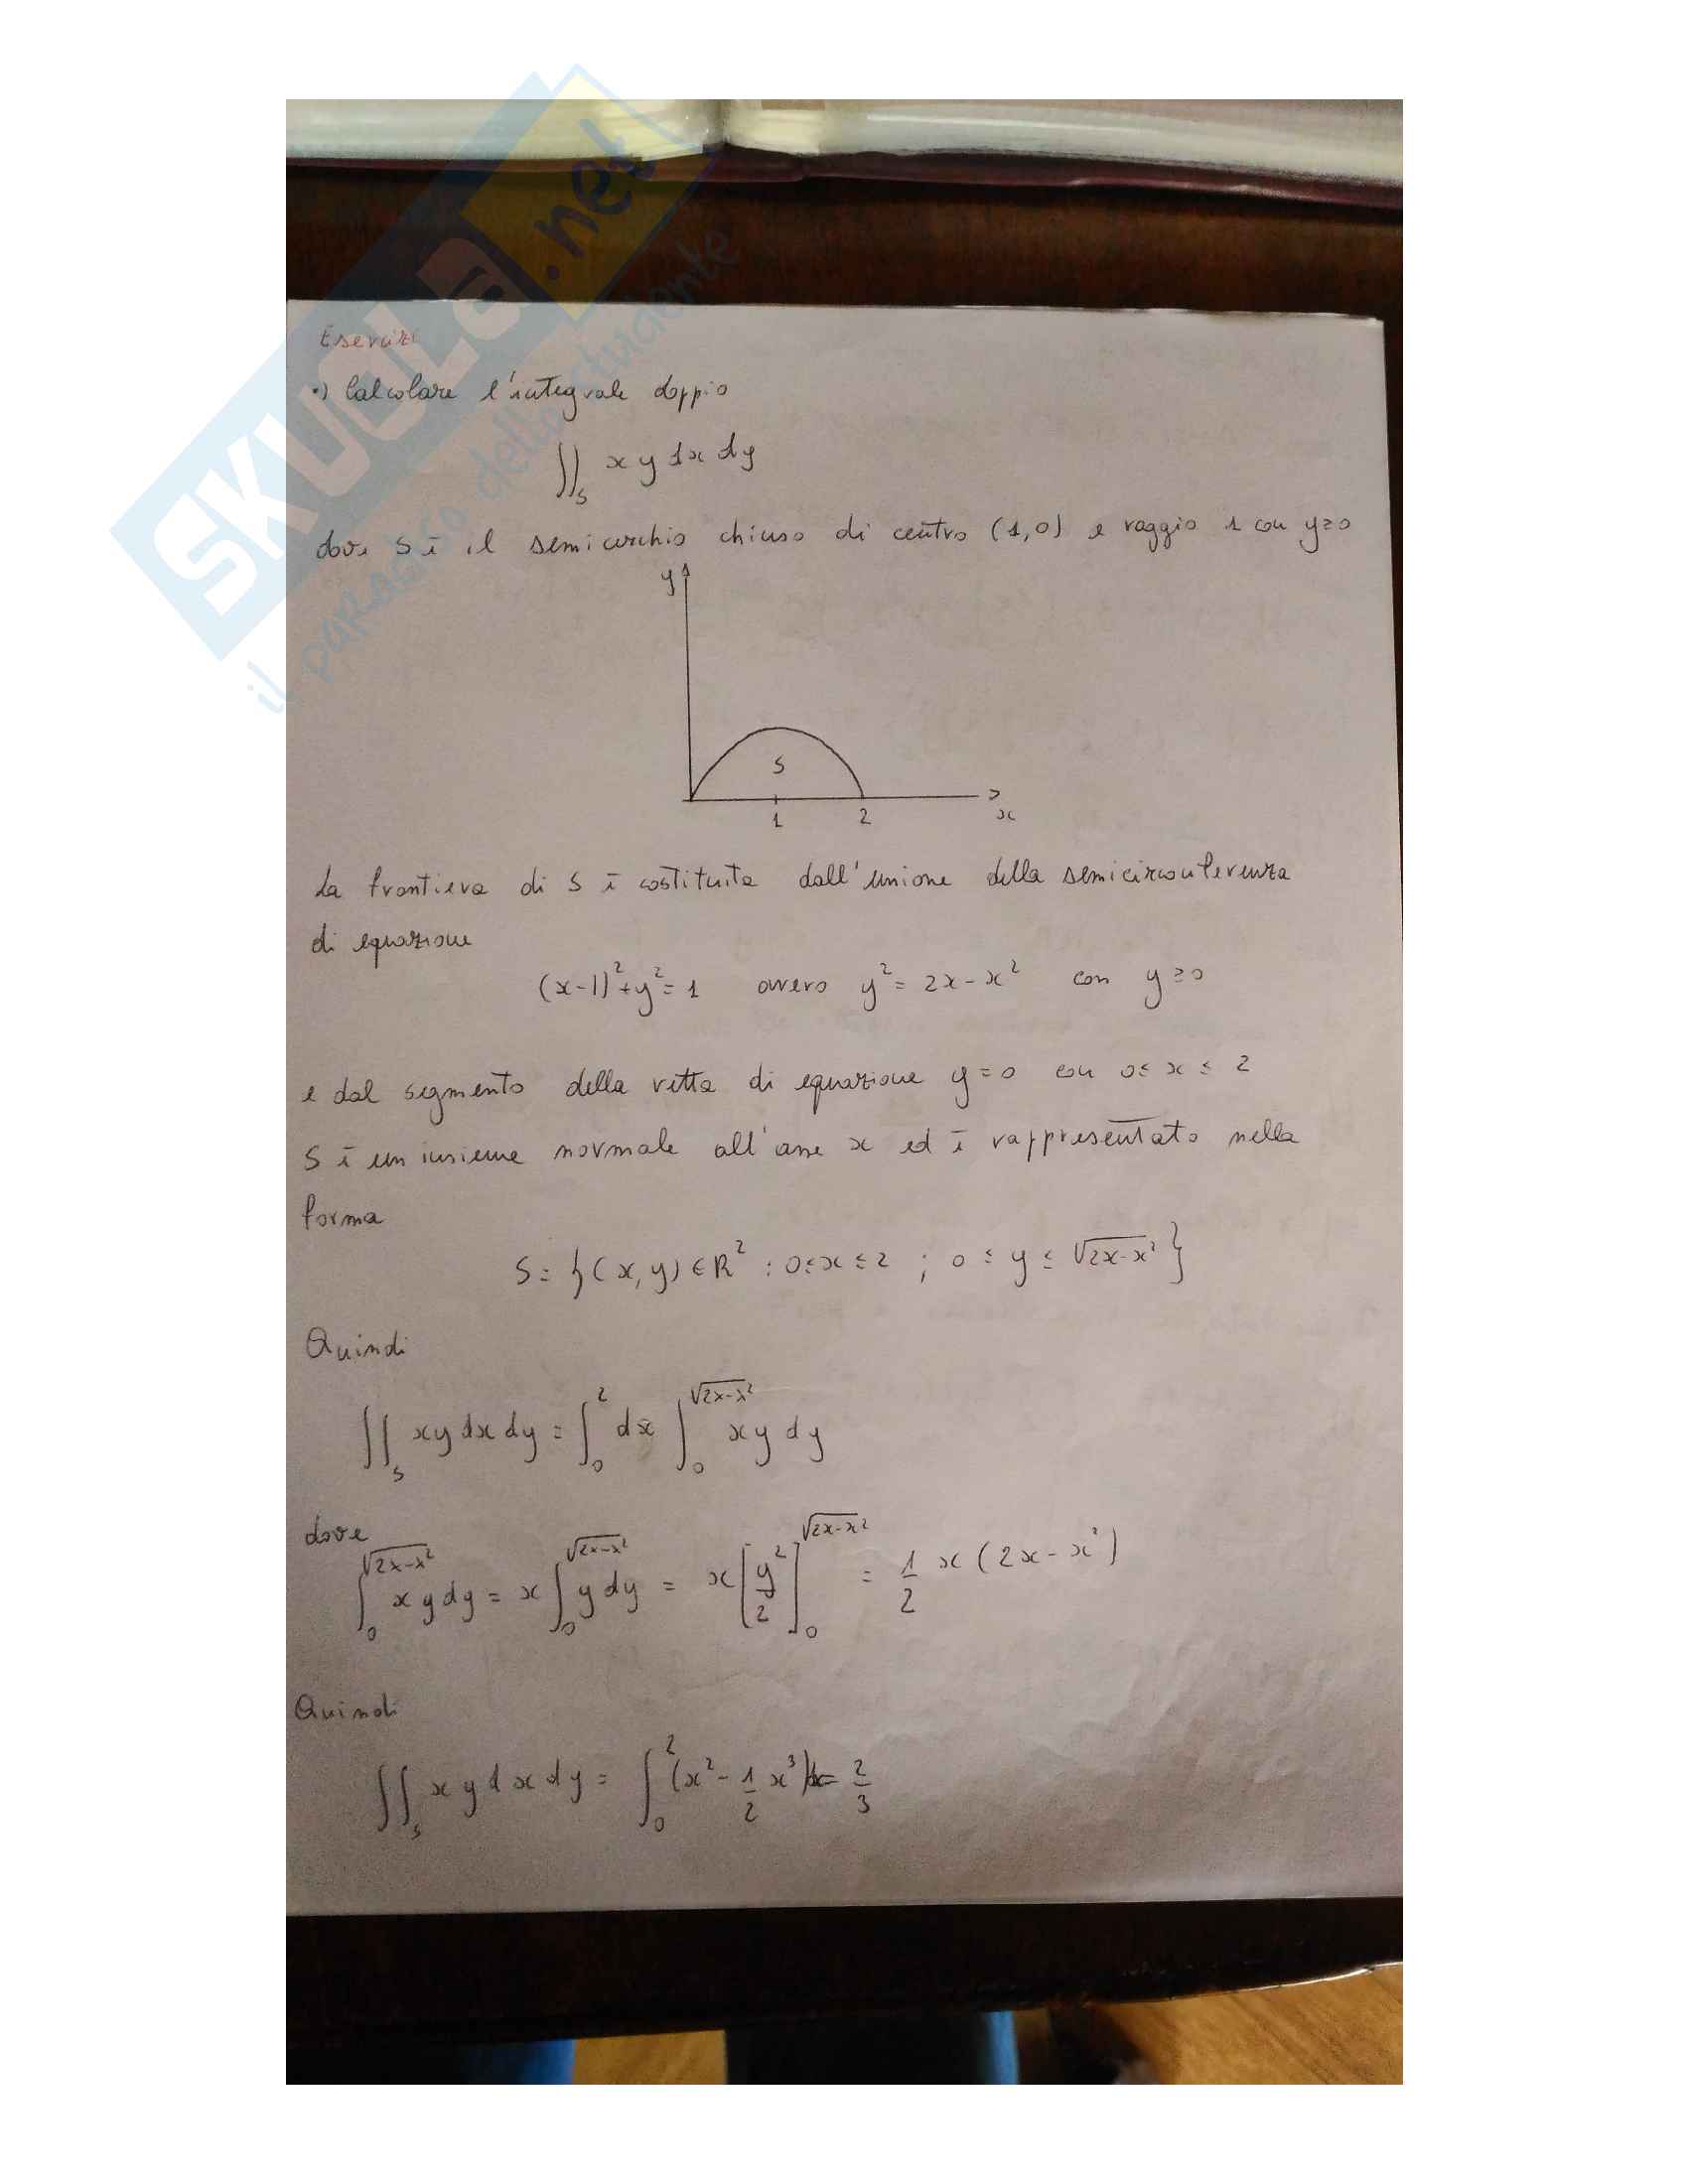 SKUOLA.net
il paradiso dello studente
Esercizi
•) Calcolare l'integrale doppio
∬_S x y dx dy
dove S è il semicerchio chiuso di centro (1,0) e raggio 1 con y≥0
y
S
1 2 x
La frontiera di S è costituita dall'unione della semicirconferenza
di equazione
(x-1)²+y²=1 ovvero y²=2x-x² con y≥0
e dal segmento della retta di equazione y=0 con 0≤x≤2
S è un insieme normale all'asse x ed è rappresentato nella
forma
S={(x,y)∈R²:0≤x≤2 ; 0≤y≤√(2x-x²)}
Quindi
∬_S xy dx dy = ∫_0^2 dx ∫_0^√(2x-x²) xy dy
dove
∫_0^√(2x-x²) xy dy = x ∫_0^√(2x-x²) y dy = x [y²/2]_0^√(2x-x²) = 1/2 x (2x-x²)
Quindi
∬_S x y dx dy = ∫_0^2 (x² - 1/2 x³)dx = 2/3